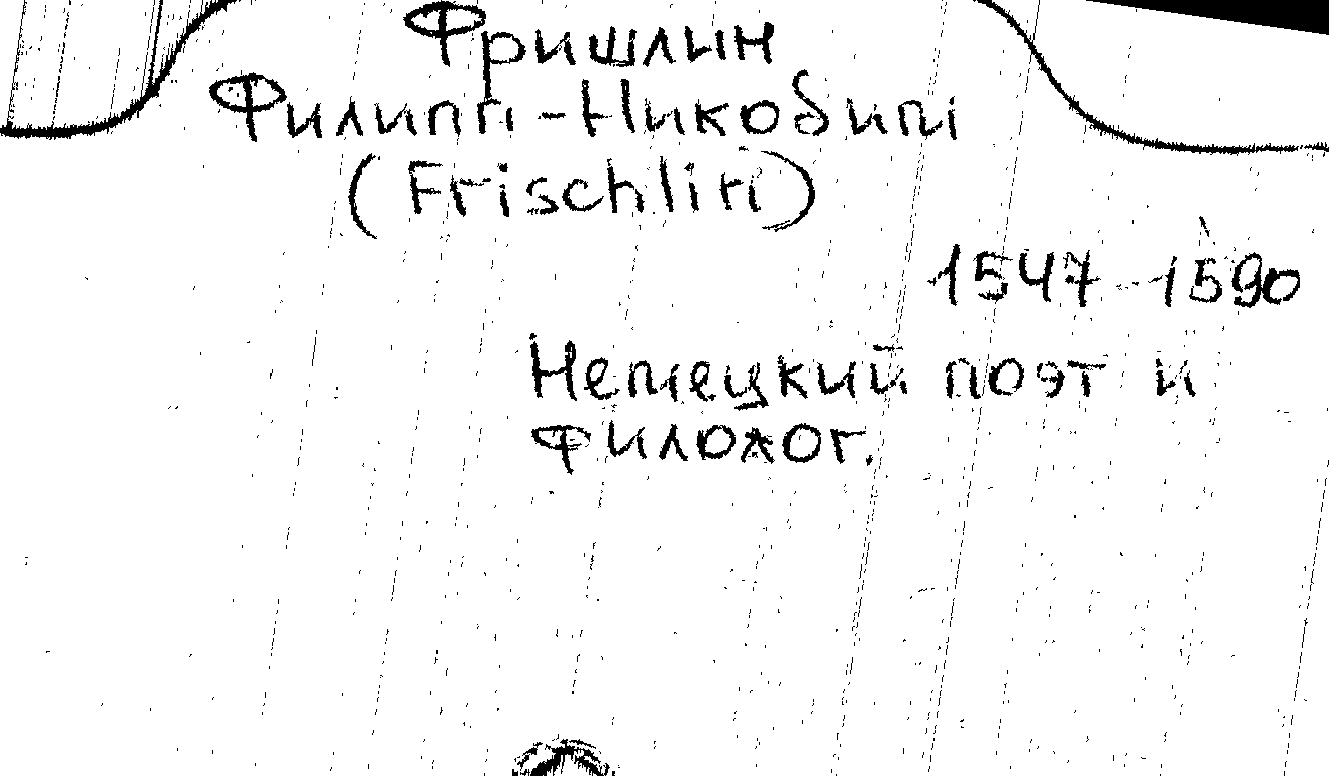 Фришлин
Филипп-Никобим
(Frischlin)
1547-1590
Немецкий поэт и
филолог.